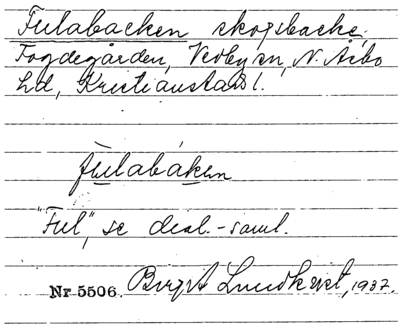 Fulabacken skogsbacke,
Fogdegården, Vedby sn, N. Åsbo
hd, Kristianstads l.
fu̲labάke̲n
"Ful", se dial.-saml.
Nr 5506. Birgit Lundkvist, 1937.